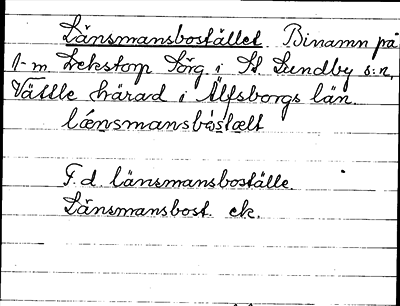 Länsmansbostället. Binamn på
1-m. Lekstorp Sörg. i St. Lundby s:n,
Vättle härad i Älfsborgs län.
lǽnsmansbòstælt
F. d. länsmansboställe.
Länsmansbost. ek.